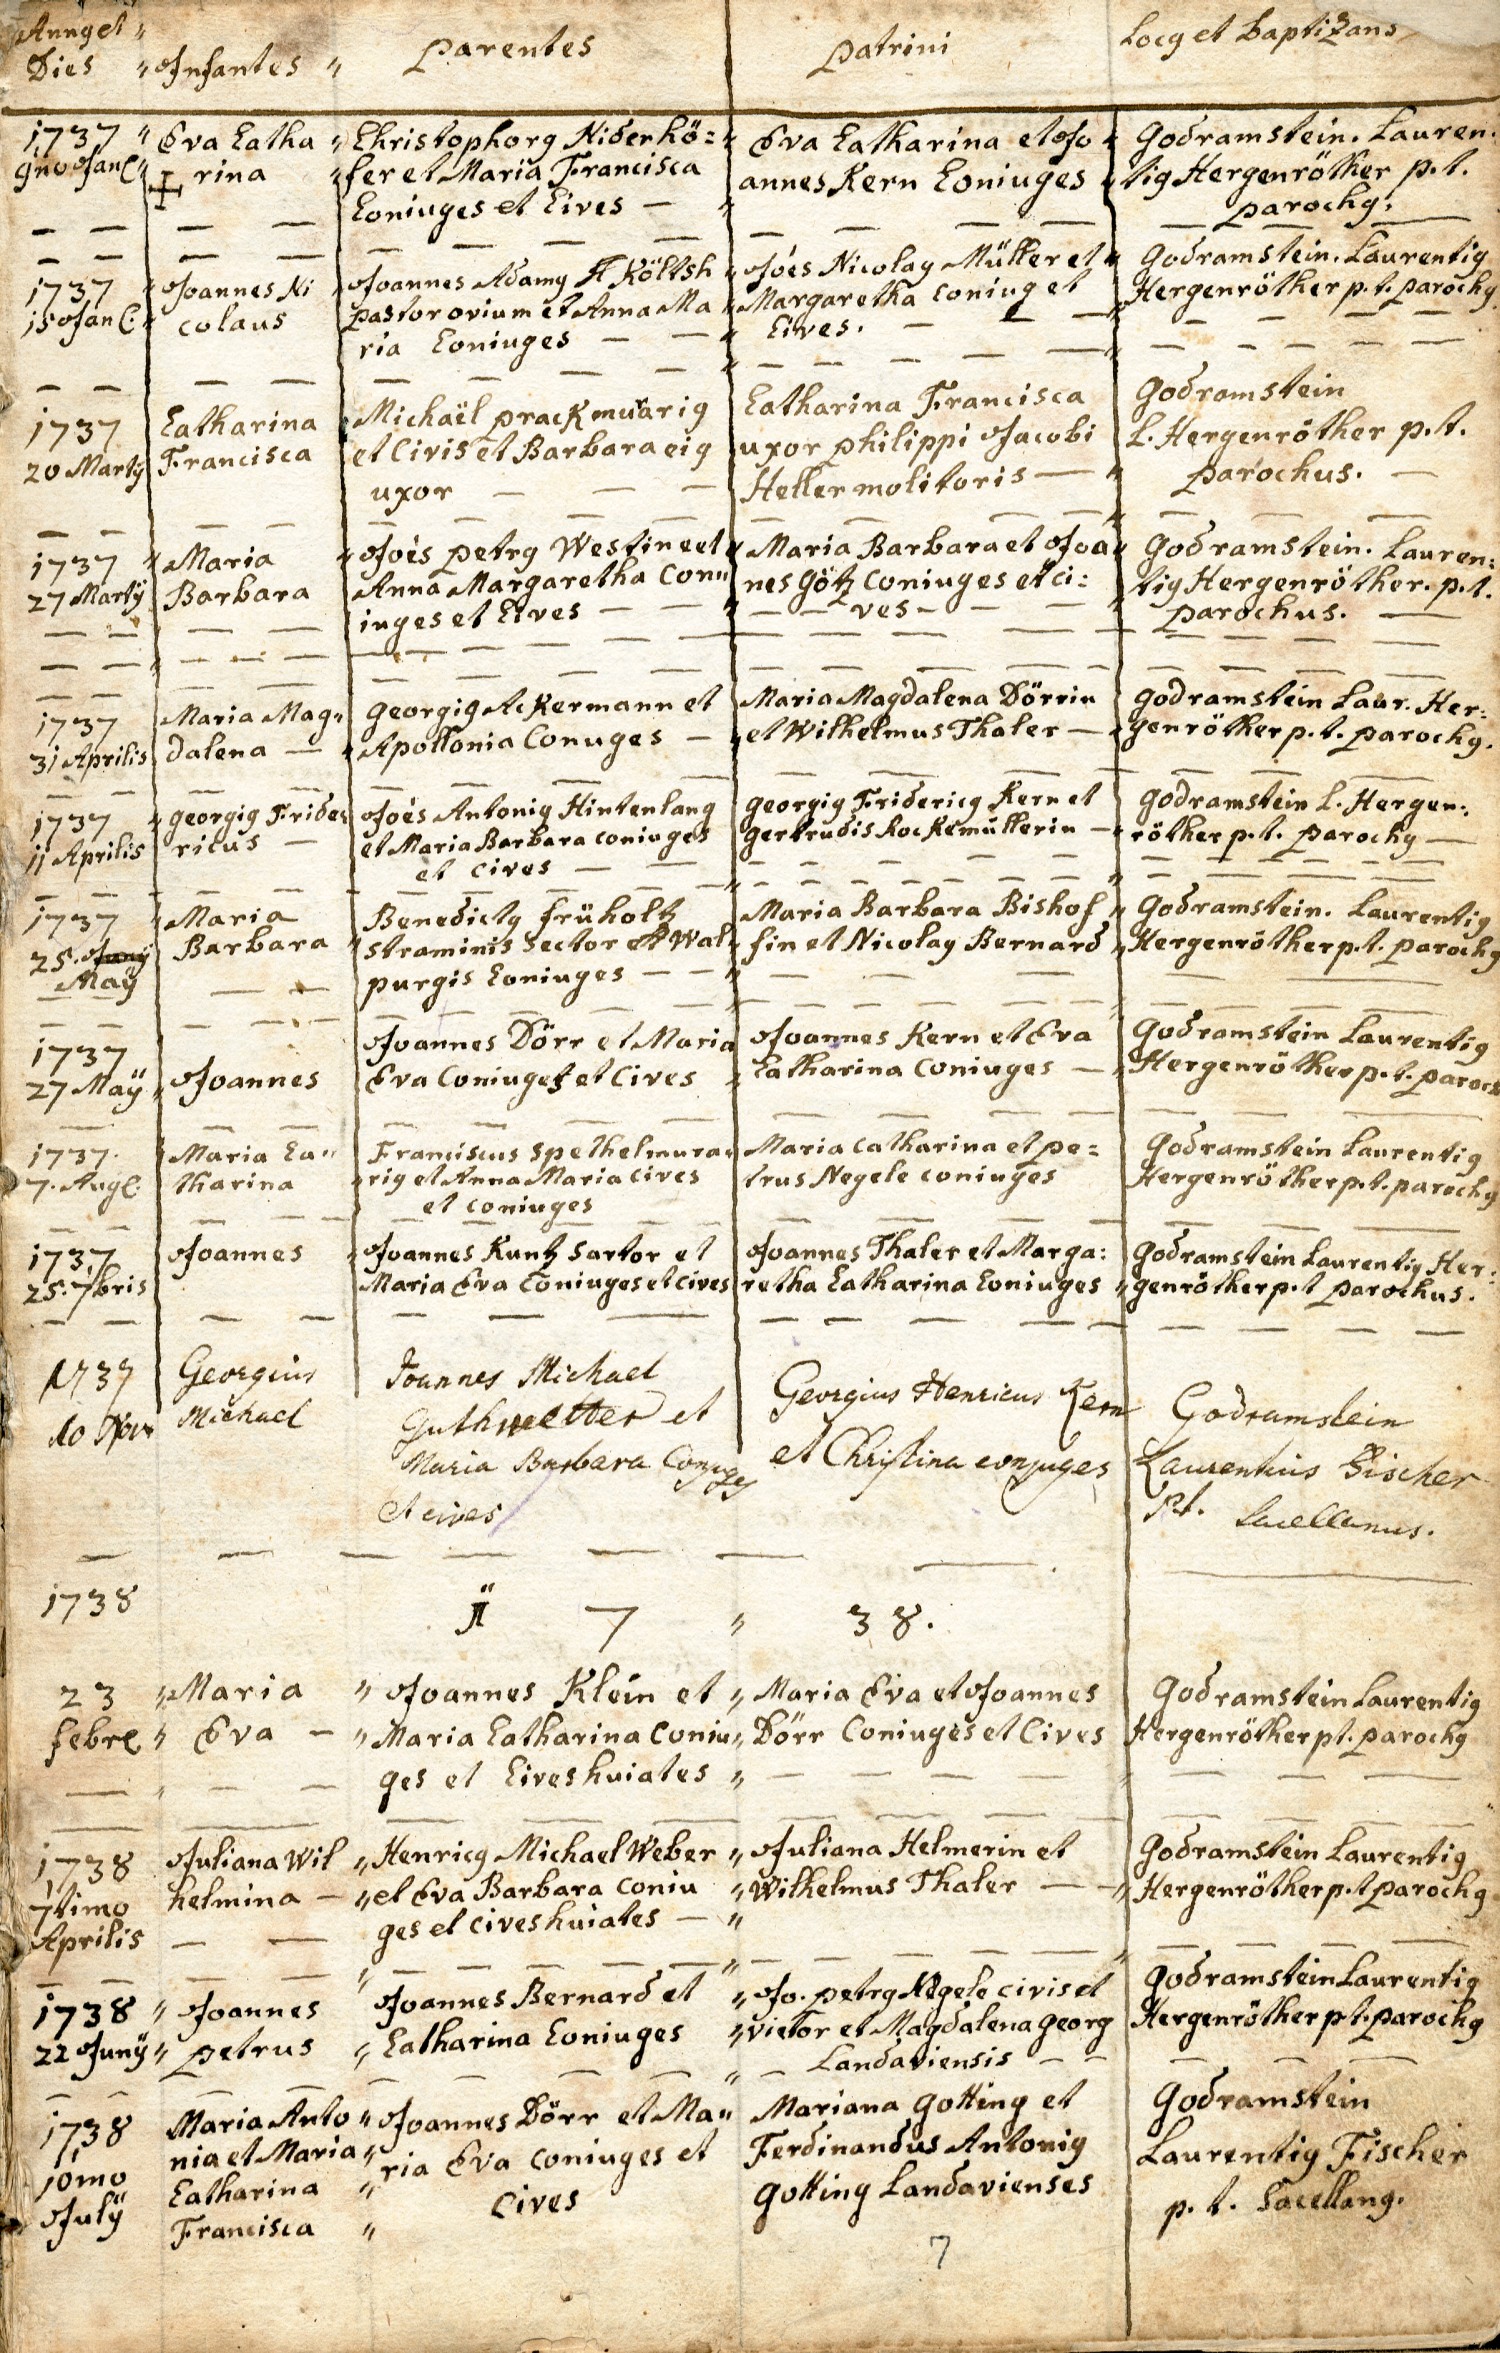 Anng et
Dies
Infantes
Parentes
Patrini
Locg et baptizans
1737
9no Jan
Eva Catha
rina
Christophorg Niderhö=
fer et Maria Francisca
Coniuges et Cives
Eva Catharina et Jo
annes Kern Coniuges
Godramstein. Lauren:
tig Hergenröther p.t.
parochg.
1737
15 Jan
Joannes Ni
colaus
Joannes Adamg Költsh
pastor ovium et Anna Ma
ria Coniuges
Joês Nicolag Müller et
Margaretha coniug et
Cives.
Godramstein. Laurentig
Hergenröther p.t. parochg
1737
20 Martÿ
Catharina
Francisca
Michaël prack murarig
et Civis et Barbara eig
uxor
Catharina Francisca
uxor philippi Jacobi
Heller molitoris
Godramstein
L. Hergenröther p.t.
parochus.
1737
27 Martÿ
Maria
Barbara
Joês petrg Westine et
Anna Margaretha Con"
iuges et Cives
Maria Barbara et Joa
nes Götz Coniuges et ci:
ves
Godramstein. Lauren:
tig Hergenröther. p.t.
parochus.
1737
31 Aprilis
Maria Mag"
dalena
Georgig Ackermann et
Apollonia Conuges
Maria Magdalena Dörrin
et Wilhelmus Thaler
Godramstein Laur. Her:
genröther p.t. parochg.
1737
11 Aprilis
Georgig Frider
ricus
Joês Antonig Hintenlang
et Maria Barbara coniuges
et cives
Georgig Fridericg Kern et
Gertrudis Rockemüllerin
Godramstein L. Hergen:
röther p.t. parochg
1737
25. Junÿ
Maÿ
Maria
Barbara
Benedictg früholtz
straminis sector et Wal
purgis Coniuges
Maria Barbara Bishof
fin et Nicolag Bernard
Godramstein. Laurentig
Hergenröther p.t. parochg
1737
27 Maÿ
Joannes
Joannes Dörr et Maria
Eva Coniuges et Cives
Joannes Kern et Eva
Catharina Coniuges
Godramstein Laurentig
Hergenröther p.t. paroch
1737.
7. Aug
Maria Ca"
tharina
Franciscus Spethel mura"
rig et Anna Maria Cives
et coniuges
Maria Catharina et pe=
trus Negele coniuges
Godramstein Laurentig
Hergenröther p.t. parochg
1737
25. 7bris
Joannes
Joannes Kuntz Sartor et
Maria Eva Coniuges et cives
Joannes Thaler et Marga:
retha Catharina Coniuges
Godramstein Laurentig Her:
genröther p.t parochus.
1737
10 Novr
Georgius
Michael
Joannes Michael
Guthwetter et
Maria Barbara Conjuges
et cives
Georgius Henricus Kern
et Christina conjuges
Godramstein
Laurentius Fischer
p.t. Sacellanus.
1738
1 7 " 38.
23
febr
Maria
Eva
Joannes Klein et
Maria Catharina Coniu
ges et Cives huiates
Maria Eva et Joannes
Dörr Coniuges et Cives
Godramstein Laurentig
Hergenröther p.t. parochg
1738
7timo
Aprilis
Juliana Wil
helmina
Henricg Michael Weber
et Eva Barbara Coniu
ges et cives huiates
Juliana Helmerin et
Wilhelmus Thaler
Godramstein Laurentig
Hergenröther p.t parochg
1738
22 Junÿ
Joannes
petrus
Joannes Bernard et
Catharina Coniuges
Jo. petrg Negele civis et
vietor et Magdalena Georg
Landaviensis
Godramstein Laurentig
Hergenröther p t. parochg
1738
10mo
Julÿ
Maria Anto
nia et Maria
Catharina
Francisca
Joannes Dörr et Ma"
ria Eva Coniuges et
Cives
Mariana Gotting et
Ferdinandus Antonig
Gotting Landavienses
Godramstein
Laurentig Fischer
p. t. Sacellang.
7